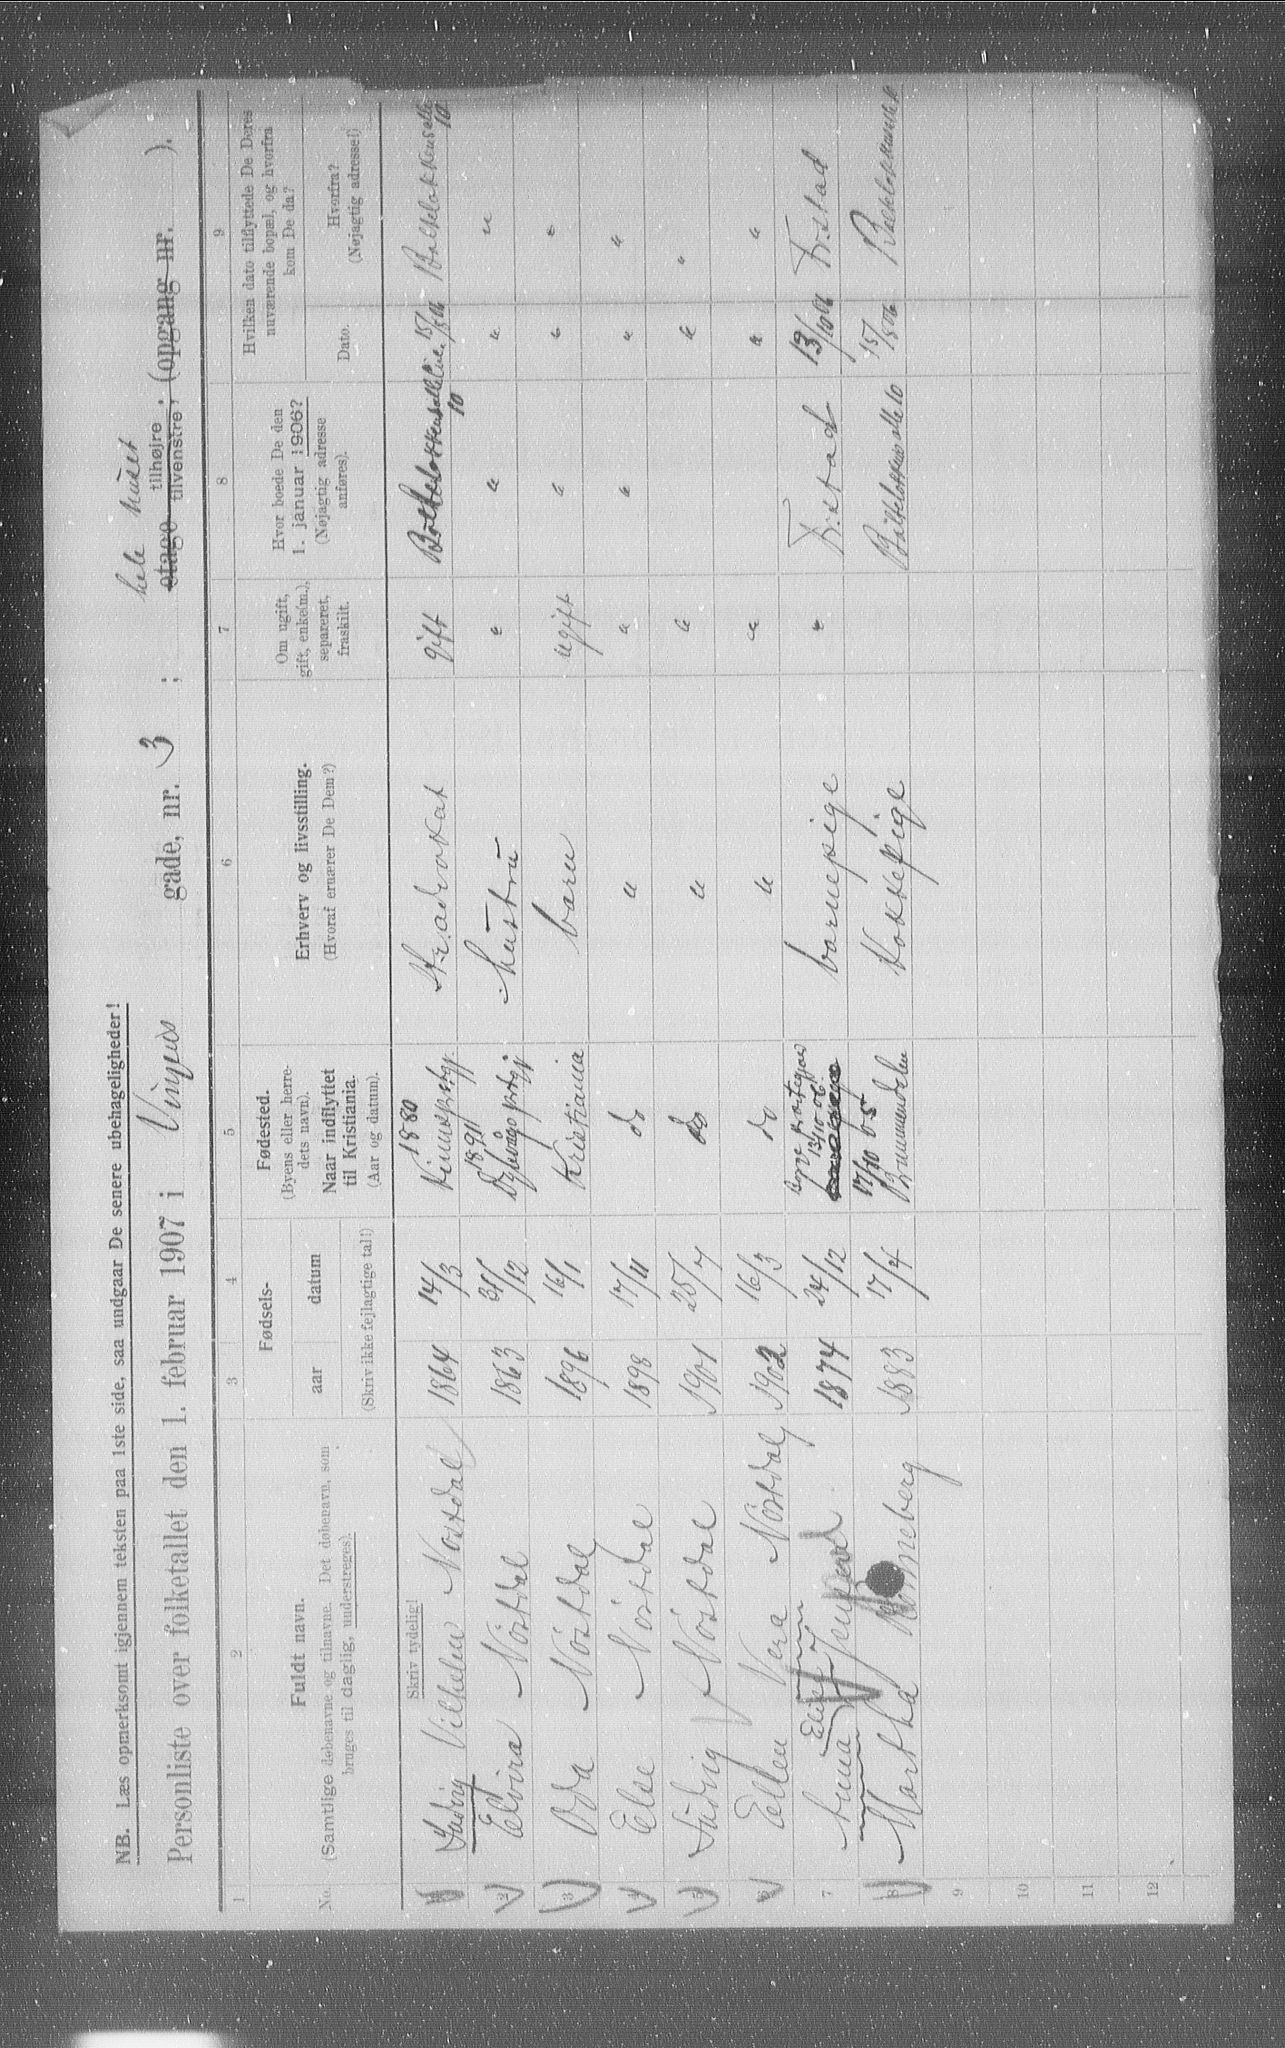 NB. Læs opmerksomt igjennem teksten paa 1ste side, saa undgaar De senere ubehageligheder!
Personliste over folketallet den 1. februar 1907 i Vinjes gade, nr. 3 ; hele huset etage tilhøjre tilvenstre; (opgang nr. ).
1 2 3 4 5 6 7 8 9
No. Fuldt navn. (Samtlige døbenavne og tilnavne. Det døbenavn, som bruges til daglig, understreges).
Fødsels-
aar datum
(Skriv ikke fejlagtige tal!)
Fødested. (Byens eller herredets navn). Naar indflyttet til Kristiania. (Aar og datum).
Erhverv og livsstilling. (Hvoraf ernærer De Dem?)
Om ugift, gift, enke(m.), separeret, fraskilt.
Hvor boede De den 1. januar 1906? (Nøjagtig adresse anføres).
Hvilken dato tilflyttede De Deres nuværende bopæl, og hvorfra kom De da?
Dato. Hvorfra? (Nøjagtig adresse!)
Skriv tydelig!
1 Ludvig Vilhelm Nostdal 1864 14/3 1880 gift
2 Elvira Nöstdal 1863 31/12 1891 hustru "  " " "
3 Oda Nöstdal 1896 16/1 Kristiania barn ugift " " "
4 Else Nöstdal 1898 17/11 do " " " " "
5 Ludvig Nöstdal 1901 25/7 do " " " "
6 Ellen Vera Nöstdal 1902 16/3 do " " " "
7 Anna Elise Jensen 1874 24/12 13/10 06 barnepige " Fr.stad 13/10 06 Fr.stad
8 Martha 1883 17/4 17/10 05 Brummundalen kokkepige 15/5 06
9
10
11
12